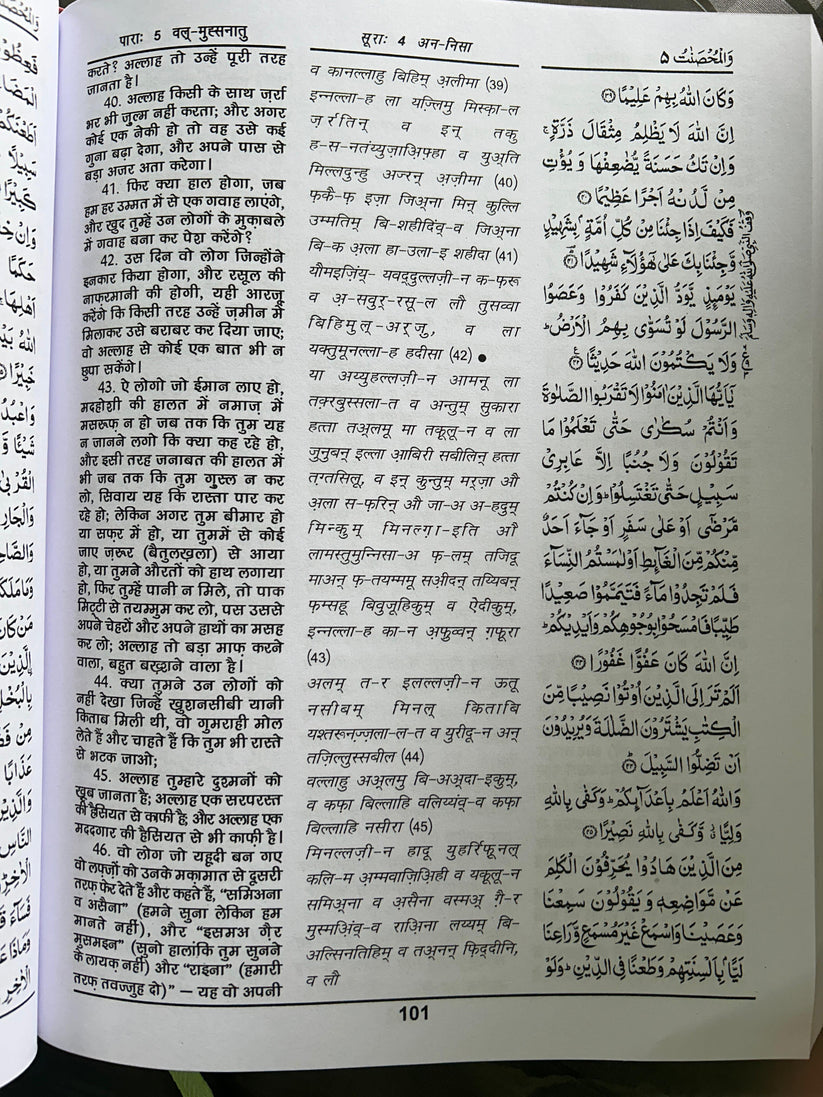 पाराः 5 वल्-मुह्सनातु
सूराः 4 अन-निसा
وَالْمُحْصَنٰتُ ۵
करते? अल्लाह तो उन्हें पूरी तरह
जानता है।
40. अल्लाह किसी के साथ ज़र्रा
भर भी जुल्म नहीं करता; और अगर
कोई एक नेकी हो तो वह उसे कई
गुना बढ़ा देगा, और अपने पास से
बड़ा अजर अता करेगा।
41. फिर क्या हाल होगा, जब
हम हर उम्मत में से एक गवाह लाएंगे,
और खुद तुम्हें उन लोगों के मुक़ाबले
में गवाह बना कर पेश करेंगे?
42. उस दिन वो लोग जिन्होंने
इनकार किया होगा, और रसूल की
नाफ़रमानी की होगी, यही आरजू
करेंगे कि किसी तरह उन्हें ज़मीन में
मिलाकर उसे बराबर कर दिया जाए;
वो अल्लाह से कोई एक बात भी न
छुपा सकेंगे।
43. ऐ लोगो जो ईमान लाए हो,
मदहोशी की हालत में नमाज़ में
मसरूफ़ न हो जब तक कि तुम यह
न जानने लगो कि क्या कह रहे हो,
और इसी तरह जनाबत की हालत में
भी जब तक कि तुम गुस्ल न कर
लो, सिवाय यह कि रास्ता पार कर
रहे हो; लेकिन अगर तुम बीमार हो
या सफ़र में हो, या तुममें से कोई
जाए ज़रूर (बैतुलख़ला) से आया
हो, या तुमने औरतों को हाथ लगाया
हो, फिर तुम्हें पानी न मिले, तो पाक
मिट्टी से तयम्मुम कर लो, पस उससे
अपने चेहरों और अपने हाथों का मसह
कर लो; अल्लाह तो बड़ा माफ़ करने
वाला, बहुत बख़्शने वाला है।
44. क्या तुमने उन लोगों को
नही देखा जिन्हें खुशनसीबी यानी
किताब मिली थी, वो गुमराही मोल
लेते हैं और चाहते हैं कि तुम भी रास्ते
से भटक जाओ;
45. अल्लाह तुम्हारे दुश्मनों को
खूब जानता है; अल्लाह एक सरपरस्त
की हैसियत से काफी है; और अल्लाह एक
मददगार की हैसियत से भी काफी है।
46. वो लोग जो यहूदी बन गए
वो लफ़्ज़ों को उनके मक़ामात से दूसरी
तरफ़ फेर देते हैं और कहते हैं, “समिअना
व असैना” (हमने सुना लेकिन हम
मानते नहीं), और “इसमअ गैर
मुसमइन” (सुनो हालांकि तुम सुनने
के लायक़ नहीं) और “राइना” (हमारी
तरफ़ तवज्जुह दो)” – यह वो अपनी
व कानल्लाहु बिहिम् अ़लीमा (39)
इन्नल्ला-ह ला यज़्लिमु मिस्क़ा-ल
ज़र्रतिन् व इन् तकु
ह-स-नतंय्युज़ाअिफ़्हा व युअ्ति
मिल्लदुन्हु अज्रन् अ़ज़ीमा (40)
फ़कै-फ़ इज़ा जिअ्ना मिन् कुल्लि
उम्मतिम् बि-शहीदिंव्-व जिअ्ना
बि-क अ़ला हा-उला-इ शहीदा (41)
यौमइज़िंय्- यवद्दुल्लज़ी-न क-फ़रू
व अ़-सवुर्-रसू-ल लौ तुसव्वा
बिहिमुल्-अर्जु, व ला
यक्तुमूनल्ला-ह हदीसा (42) ●
या अय्युहल्लज़ी-न आमनू ला
तक़्रबुस्सला-त व अन्तुम् सुकारा
हत्ता तअ्लमू मा तकूलू-न व ला
जुनुबन् इल्ला आबिरी सबीलिन् हत्ता
तग़्तसिलू, व इन् कुन्तुम् मर्ज़ा औ
अ़ला स-फ़रिन् औ जा-अ अ-हदुम्
मिन्कुम् मिनल्ग़ा-इति औ
लामस्तुमुन्निसा-अ फ़-लम् तजिदू
माअन् फ़-तयम्ममू सअ़ीदन् तय्यिबन्
फ़म्सहू बिवुजूहिकुम् व ऐदीकुम्,
इन्नल्ला-ह का-न अ़फुव्वन् ग़फूरा
(43)
अलम् त-र इलल्लज़ी-न ऊतू
नसीबम् मिनल् किताबि
यश्तरूनज़्ज़ला-ल-त व युरीदू-न अन्
तज़िल्लुस्सबील (44)
वल्लाहु अअ्लमु बि-अअ्दा-इकुम्,
व कफ़ा बिल्लाहि वलिय्यंव्-व कफ़ा
बिल्लाहि नसीरा (45)
मिनल्लज़ी-न हादू युहर्रिफूनल्
कलि-म अ़म्मवाज़िअ़िही व यकूलू-न
समिअ़्ना व अ़सैना वस्मअ़् ग़ै-र
मुस्मअ़िंव्-व राअ़िना लय्यम् बि-
अल्सिनतिहिम् व तअ़्नन् फ़िद्दीनि,
व लौ
وَكَانَ اللهُ بِهِمْ عَلِيْمًا ۝۳۹
اِنَّ اللهَ لَا يَظْلِمُ مِثْقَالَ ذَرَّةٍ ۚ
وَاِنْ تَكُ حَسَنَةً يُّضٰعِفْهَا وَيُؤْتِ
مِنْ لَّدُنْهُ اَجْرًا عَظِيْمًا ۝۴۰
فَكَيْفَ اِذَا جِئْنَا مِنْ كُلِّ اُمَّةٍۭ بِشَهِيْدٍ
وَّجِئْنَا بِكَ عَلٰى هٰٓؤُلَآءِ شَهِيْدًا ۝۴۱
يَوْمَىِٕذٍ يَّوَدُّ الَّذِيْنَ كَفَرُوْا وَعَصَوُا
الرَّسُوْلَ لَوْ تُسَوّٰى بِهِمُ الْاَرْضُ ؕ
وَلَا يَكْتُمُوْنَ اللهَ حَدِيْثًا ۝۴۲
يٰٓاَيُّهَا الَّذِيْنَ اٰمَنُوْا لَا تَقْرَبُوا الصَّلٰوةَ
وَاَنْتُمْ سُكٰرٰى حَتّٰى تَعْلَمُوْا مَا
تَقُوْلُوْنَ وَلَا جُنُبًا اِلَّا عَابِرِىْ
سَبِيْلٍ حَتّٰى تَغْتَسِلُوْا ؕ وَاِنْ كُنْتُمْ
مَّرْضٰٓى اَوْ عَلٰى سَفَرٍ اَوْ جَآءَ اَحَدٌ
مِّنْكُمْ مِّنَ الْغَآىِٕطِ اَوْ لٰمَسْتُمُ النِّسَآءَ
فَلَمْ تَجِدُوْا مَآءً فَتَيَمَّمُوْا صَعِيْدًا
طَيِّبًا فَامْسَحُوْا بِوُجُوْهِكُمْ وَاَيْدِيْكُمْ ؕ
اِنَّ اللهَ كَانَ عَفُوًّا غَفُوْرًا ۝۴۳
اَلَمْ تَرَ اِلَى الَّذِيْنَ اُوْتُوْا نَصِيْبًا مِّنَ
الْكِتٰبِ يَشْتَرُوْنَ الضَّلٰلَةَ وَيُرِيْدُوْنَ
اَنْ تَضِلُّوا السَّبِيْلَ ۝۴۴
وَاللهُ اَعْلَمُ بِاَعْدَآىِٕكُمْ ؕ وَكَفٰى بِاللهِ
وَلِيًّا ۫ۙ وَّكَفٰى بِاللهِ نَصِيْرًا ۝۴۵
مِنَ الَّذِيْنَ هَادُوْا يُحَرِّفُوْنَ الْكَلِمَ
عَنْ مَّوَاضِعِهٖ وَيَقُوْلُوْنَ سَمِعْنَا
وَعَصَيْنَا وَاسْمَعْ غَيْرَ مُسْمَعٍ وَّرَاعِنَا
لَيًّۢا بِاَلْسِنَتِهِمْ وَطَعْنًا فِى الدِّيْنِ ؕ وَلَوْ
101